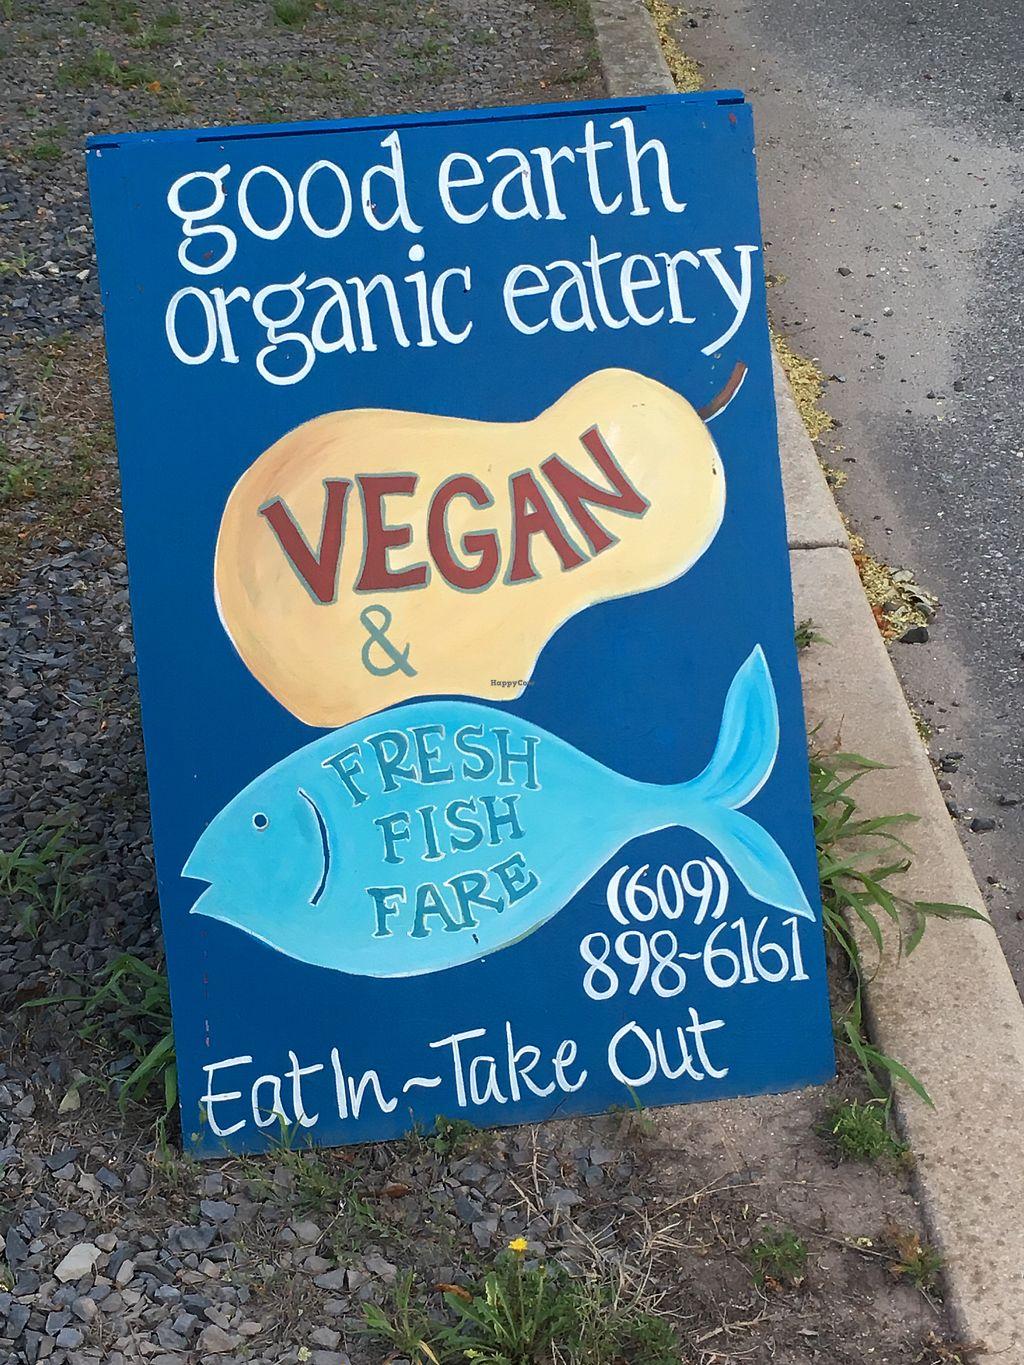 good earth
organic eatery
VEGAN
&
HappyCow
FRESH
FISH
FARE
(609)
898-6161
Eat In ~ Take Out